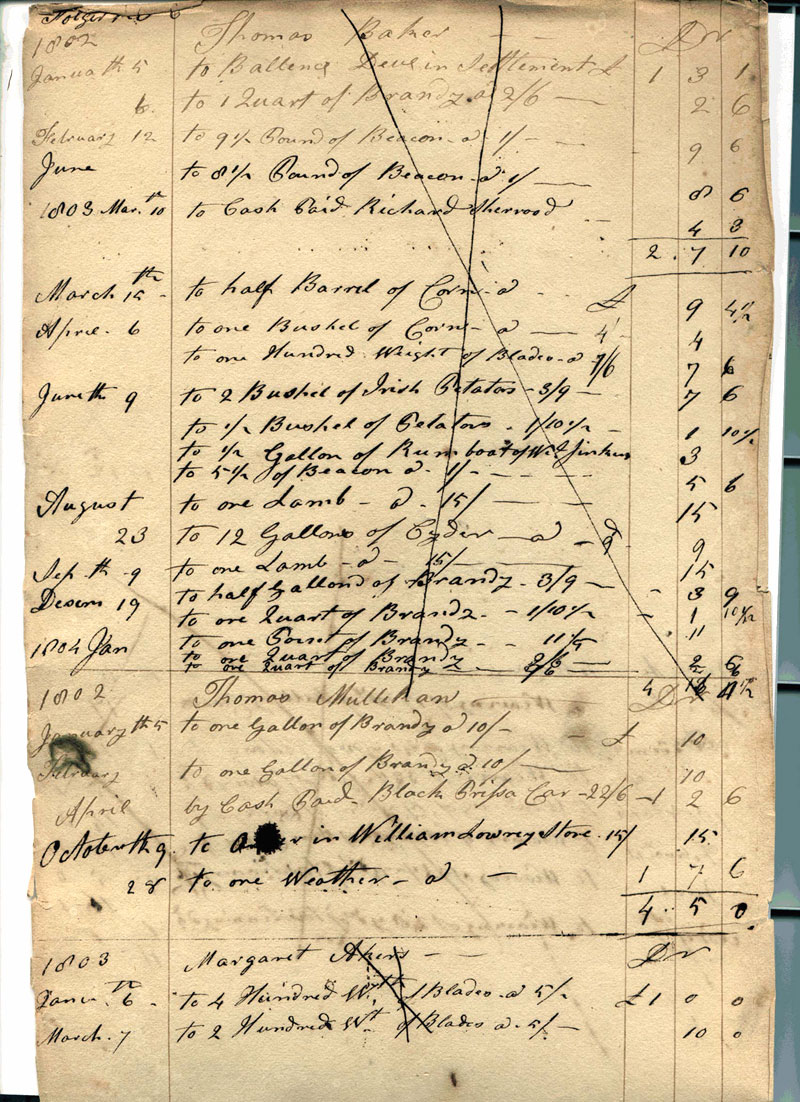 1802 Thomas Baker - - Dr
Januath 5 to Ballence Deue in Settlement £ 1 3 1
6. to 1 Quart of Brandy a 2/6 — 2 6
February 12 to 9 1/2 Pound of Beacon - a 1/ — 9 6
June to 8 1/2 Pound of Beacon - a 1/ — 8 6
1803 Mar. th 10 to Cash Paid Richard Sherwood 4 3
2. 7 10
March th 15 - to half Barrel of Corn - a - £ 9 4 1/2
April - 6 to one Bushel of Corn - a — 4/ 4
to one Hundred Weight of Blades - a 7/6 7 6
June th 9 to 2 Bushel of Irish Petators - 3/9 — 7 6
to 1/2 Bushel of Petators - 1/10 1/2 — 1 10 1/2
to 1/2 Gallon of Rum boat of Wm Jinkins 3
to 5 1/2 of Beacon a - 1/ - 5 6
August to one Lamb - a - 15/ — 15
23 to 12 Gallons of Cyder — a — 9 9
Sep th - 9 to one Lamb - a - 15/ 15
to half Gallond of Brandy - 3/9 — 3 9
Desem 19 to one Quart of Brandy - - 1/10 1/2 - 1 10 1/2
to one Point of Brandy - - 11 1/4 11
1804 Jan to one Quart of Brandy 2/6 — 2 6
to one Quart of Brandy 2/6 2 6
1802 Thomas Mullikan Dr
January th 5 to one Gallon of Brandy a 10/- £ 10
February to one Gallon of Brandy a 10/ — 10
April by Cash Paid - Black Prissa Car - 22/6 - 1 2 6
October th 9. to in William Lowrey Store - 15/ 15
28 to one Weather - a - 1 7 6
4 5 0
1803 Margaret Akers - - Dr
Janu. th 6 - to 4 Hundred Wth of Blades - a 5/- £1 0 0
March - 7 to 2 Hundred Wth of Blades a - 5/- 10 0